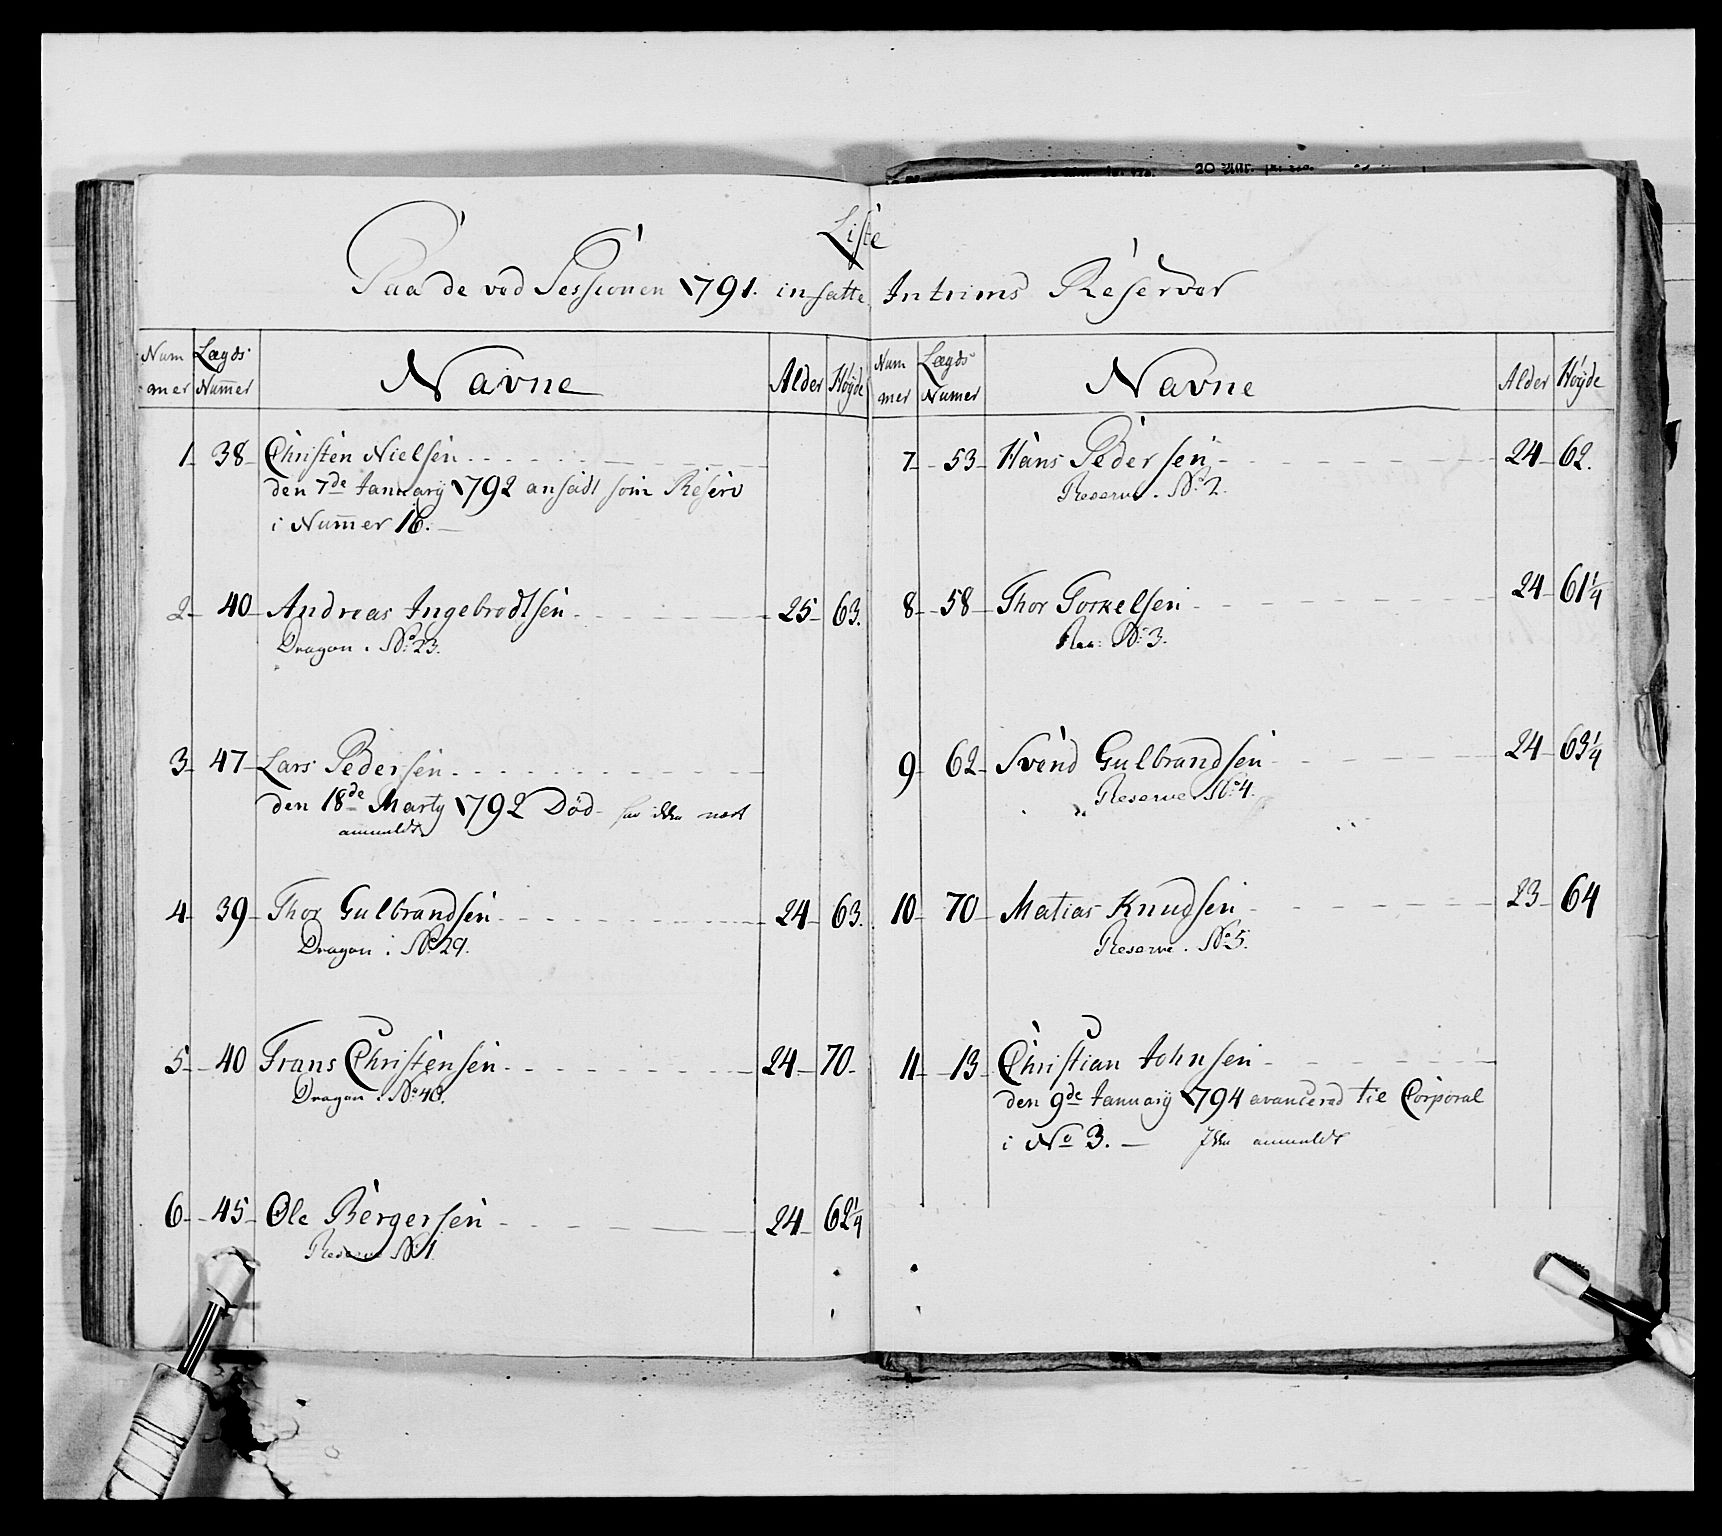 Liste
Paa de ved Sessionen 1791. insatte Intrims Reserver
Num mer Lægds Num̄er Navne Alder Høyde
1 38 Christen Nielsen
den 7de Januarij 1792 ansadt som Reserv
i Num̄er 16.
2 40 Andreas Ingebredtsen 25 63.
Dragon. No: 23.
3 47 Lars Pedersen
den 18de Marty 1792 Død har ikke vært
anmeldt
4 39 Thor Gulbrandsen 24 63.
Dragon. No 29.
5 40 Frans Christensen 24 70
Dragon. No 40.
6 45 Ole Bergersen 24 62 1/4
Reserve No 1
Num mer Lægds Numer Navne Alder Høyde
7 53 Hans Pedersen 24 62.
Reserve. No: 2.
8 58 Thor Torkelsen 24 61 1/4
No: 3.
9 62 Svend Gulbrandsen 24 63 1/4
Reserve. No 4.
10 70 Matias Knudsen 23 64
Reserve. No 5.
11 13 Christian Johnsen
den 9de Januarij 1794 avancered til Corporal
i No 3. Ikke anmeldt